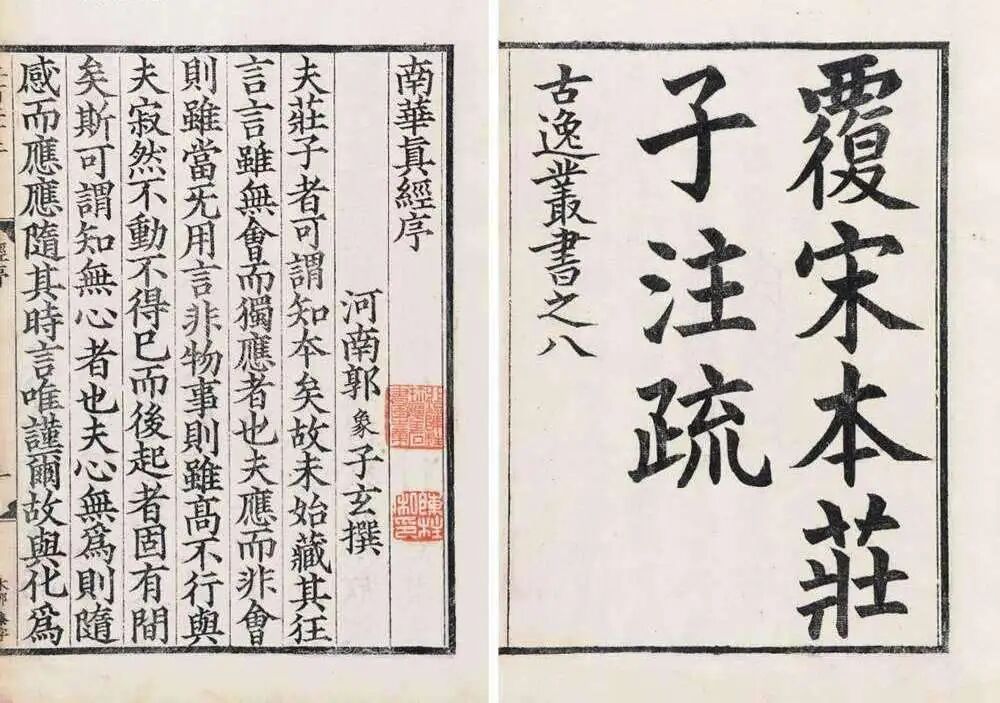 覆宋本莊
子注疏
古逸叢書之八
南華眞經序
河南郭象子玄撰
夫莊子者可謂知夲矣故未始藏其狂
言言雖無會而獨應者也夫應而非會
則雖當无用言非物事則雖髙不行與
夫寂然不動不得已而後起者固有間
矣斯可謂知無心者也夫心無爲則隨
感而應應隨其時言唯謹爾故與化爲